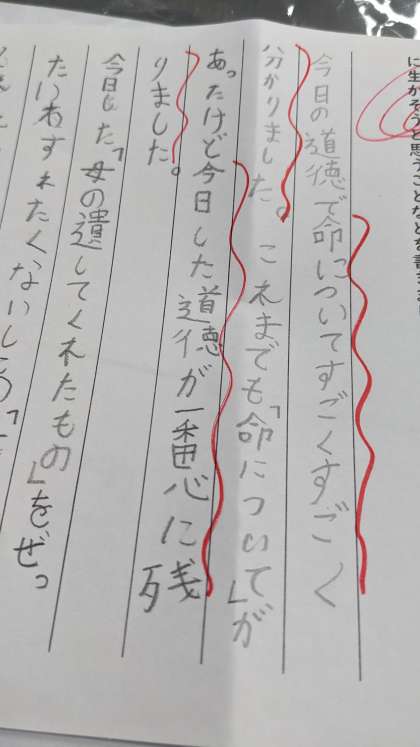 に生かそうと思うことなどを書き
今日の道徳で命についてすごくすごく
分かりました。これまでも「命について」が
あったけど今日した道徳が一番心に残
りました。
今日した「母の遺してくれたもの」をぜっ
たいわすれたくないし